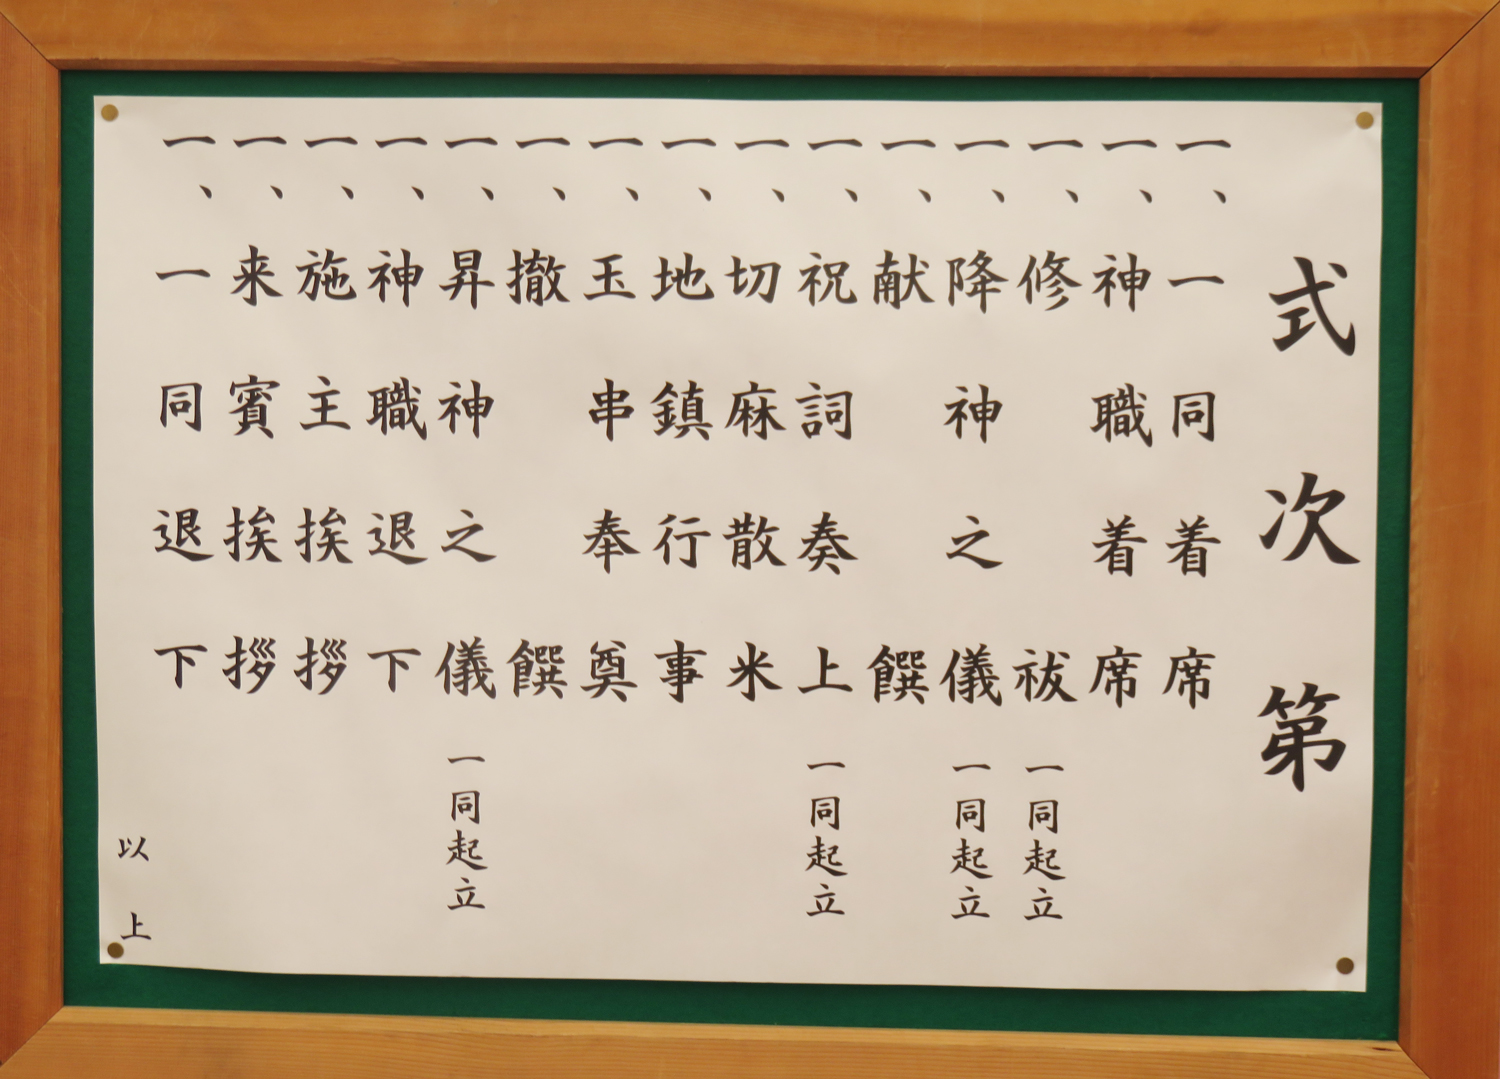 式次第
一、一同着席
一、神職着席
一、修祓 一同起立
一、降神之儀 一同起立
一、献饌
一、祝詞奏上 一同起立
一、切麻散米
一、地鎮行事
一、玉串奉奠
一、撤饌
一、昇神之儀 一同起立
一、神職退下
一、施主挨拶
一、来賓挨拶
一、一同退下
以上